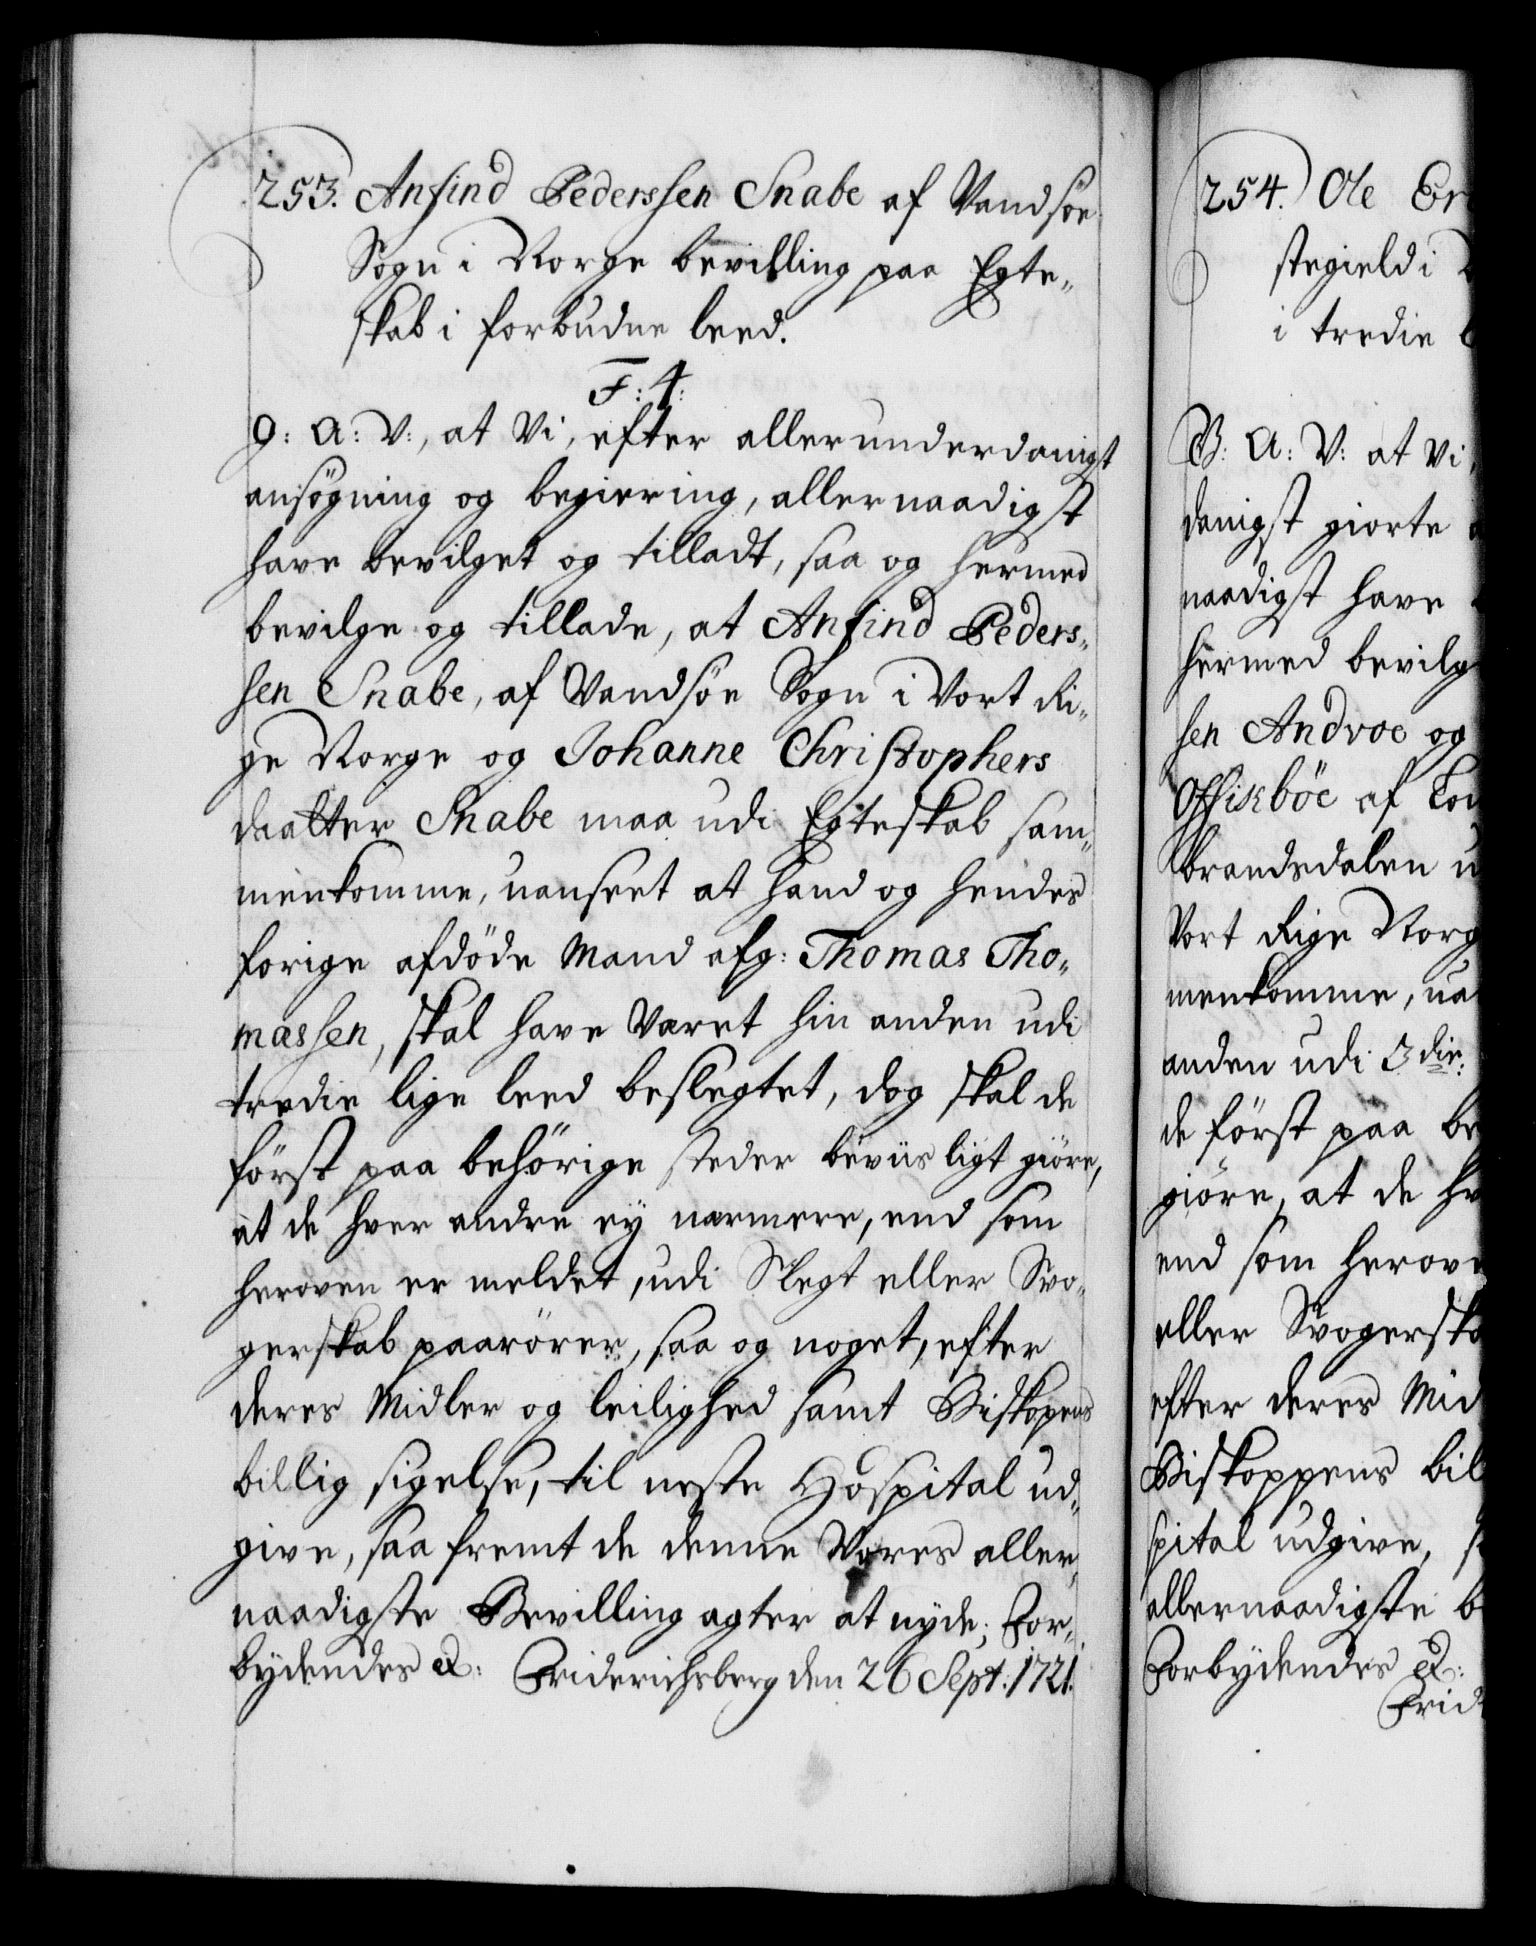 253. Anfind Pederssen Snabe af Vandsøe
Sogn i Norge bevilling paa Egte„
skab i forbudne leed.
F: 4:
G: A: V:, at Vi, efter allerunderdanigst
ansøgning og begiering, allernaadigst
have bevilget og tilladt, saa og hermed
bevilge og tillade, at Anfind Peders„
sen Snabe, af Vandsøe Sogn i Vort Ri„
ge Norge og Johanne Christophers
daatter Snabe maa udi Egteskab sam„
menkomme, uanseet at hand og hendes
forige afdøde Mand afg: Thomas Tho„
massen, skal have Været hin anden udi
tredie lige leed beslegtet, dog skal de
først paa behørige steder beviisligt giøre,
at de hver andre ey nærmere, end som
heroven er meldet, udi Slegt eller Svo„
gerskab paarører, saa og noget, efter
deres Midler og leilighed samt Biskopens
billig sigelse, til neste Hospital ud„
give, saa fremt de denne Vores aller„
naadigste Bevilling agter at nyde; For„
bydendes &: Friderichsberg den 26 Sept: 1721.
254. Ole Er
stegield i
i tredie
G: A: V: at Vi,
danigst giorte
naadigst have
hermed bevilg
sen Andvoe og
af
brandsdalen u
Vort Rige Norg
menkomme, ua
anden udi 3die:
de først paa be
giøre, at de hv
end som herove
eller Svogerska
efter deres Mid
Biskoppens bil
spital udgive, s
allernaadigste b
Forbydendes &:
Frid